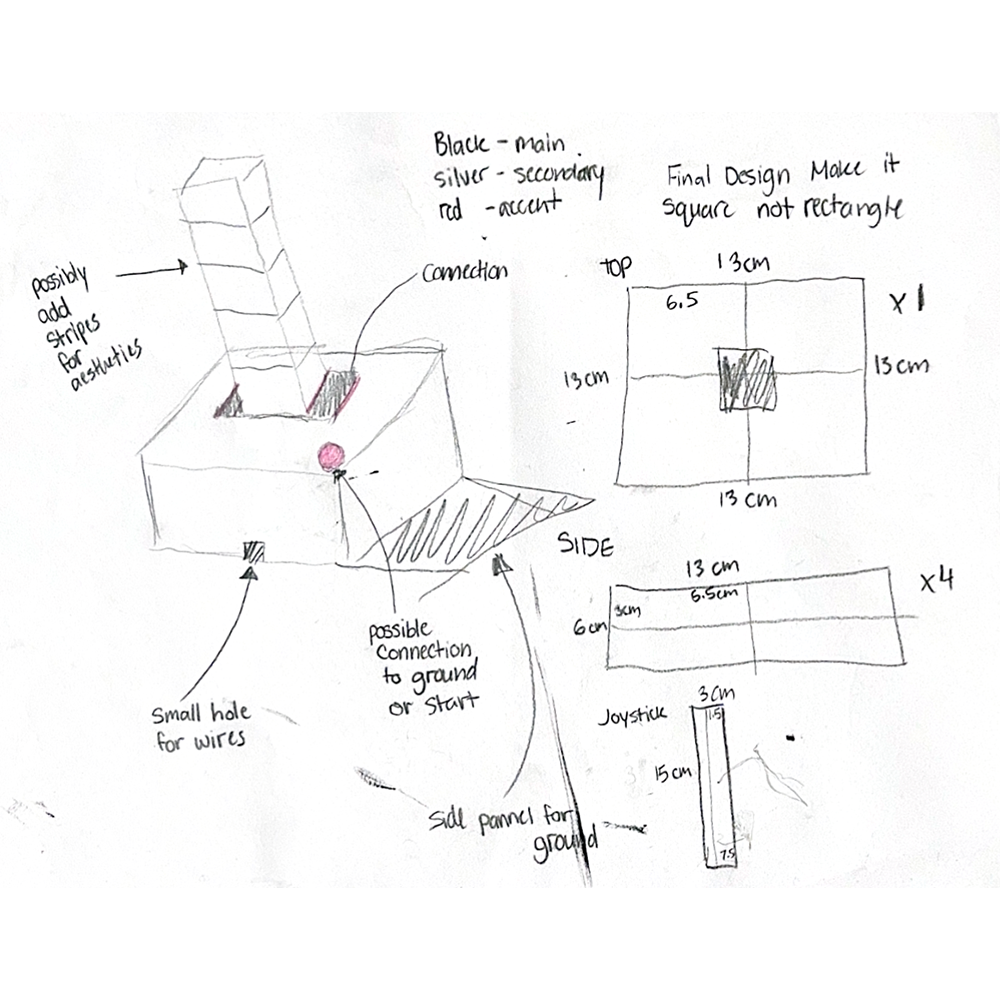 Black - main
silver - secondary
red - accent
Final Design Make it
square not rectangle
possibly
add
stripes
for
aesthetics
Connection
TOP
13cm
6.5
x 1
13cm
13cm
13 cm
SIDE
13 cm
6.5cm
3cm
6cm
x4
possible
connection
to ground
or start
Small hole
for wires
Joystick
3cm
1.5
15cm
7.5
Side pannel for
ground